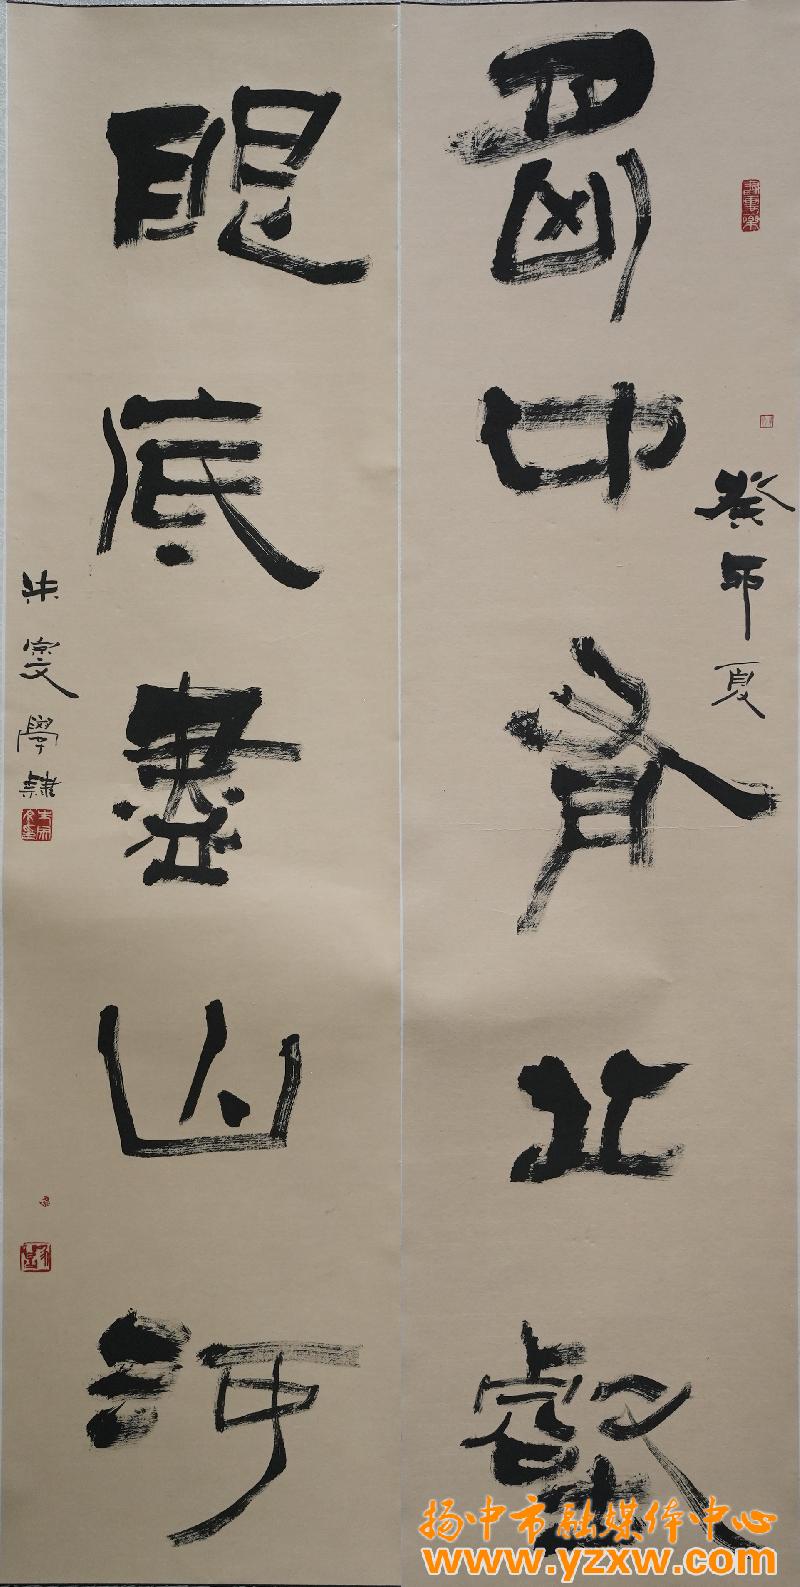 胸中有丘壑
癸卯夏
眼底盡山河
朱宗文學隸
扬中市融媒体中心
www.yzxw.com